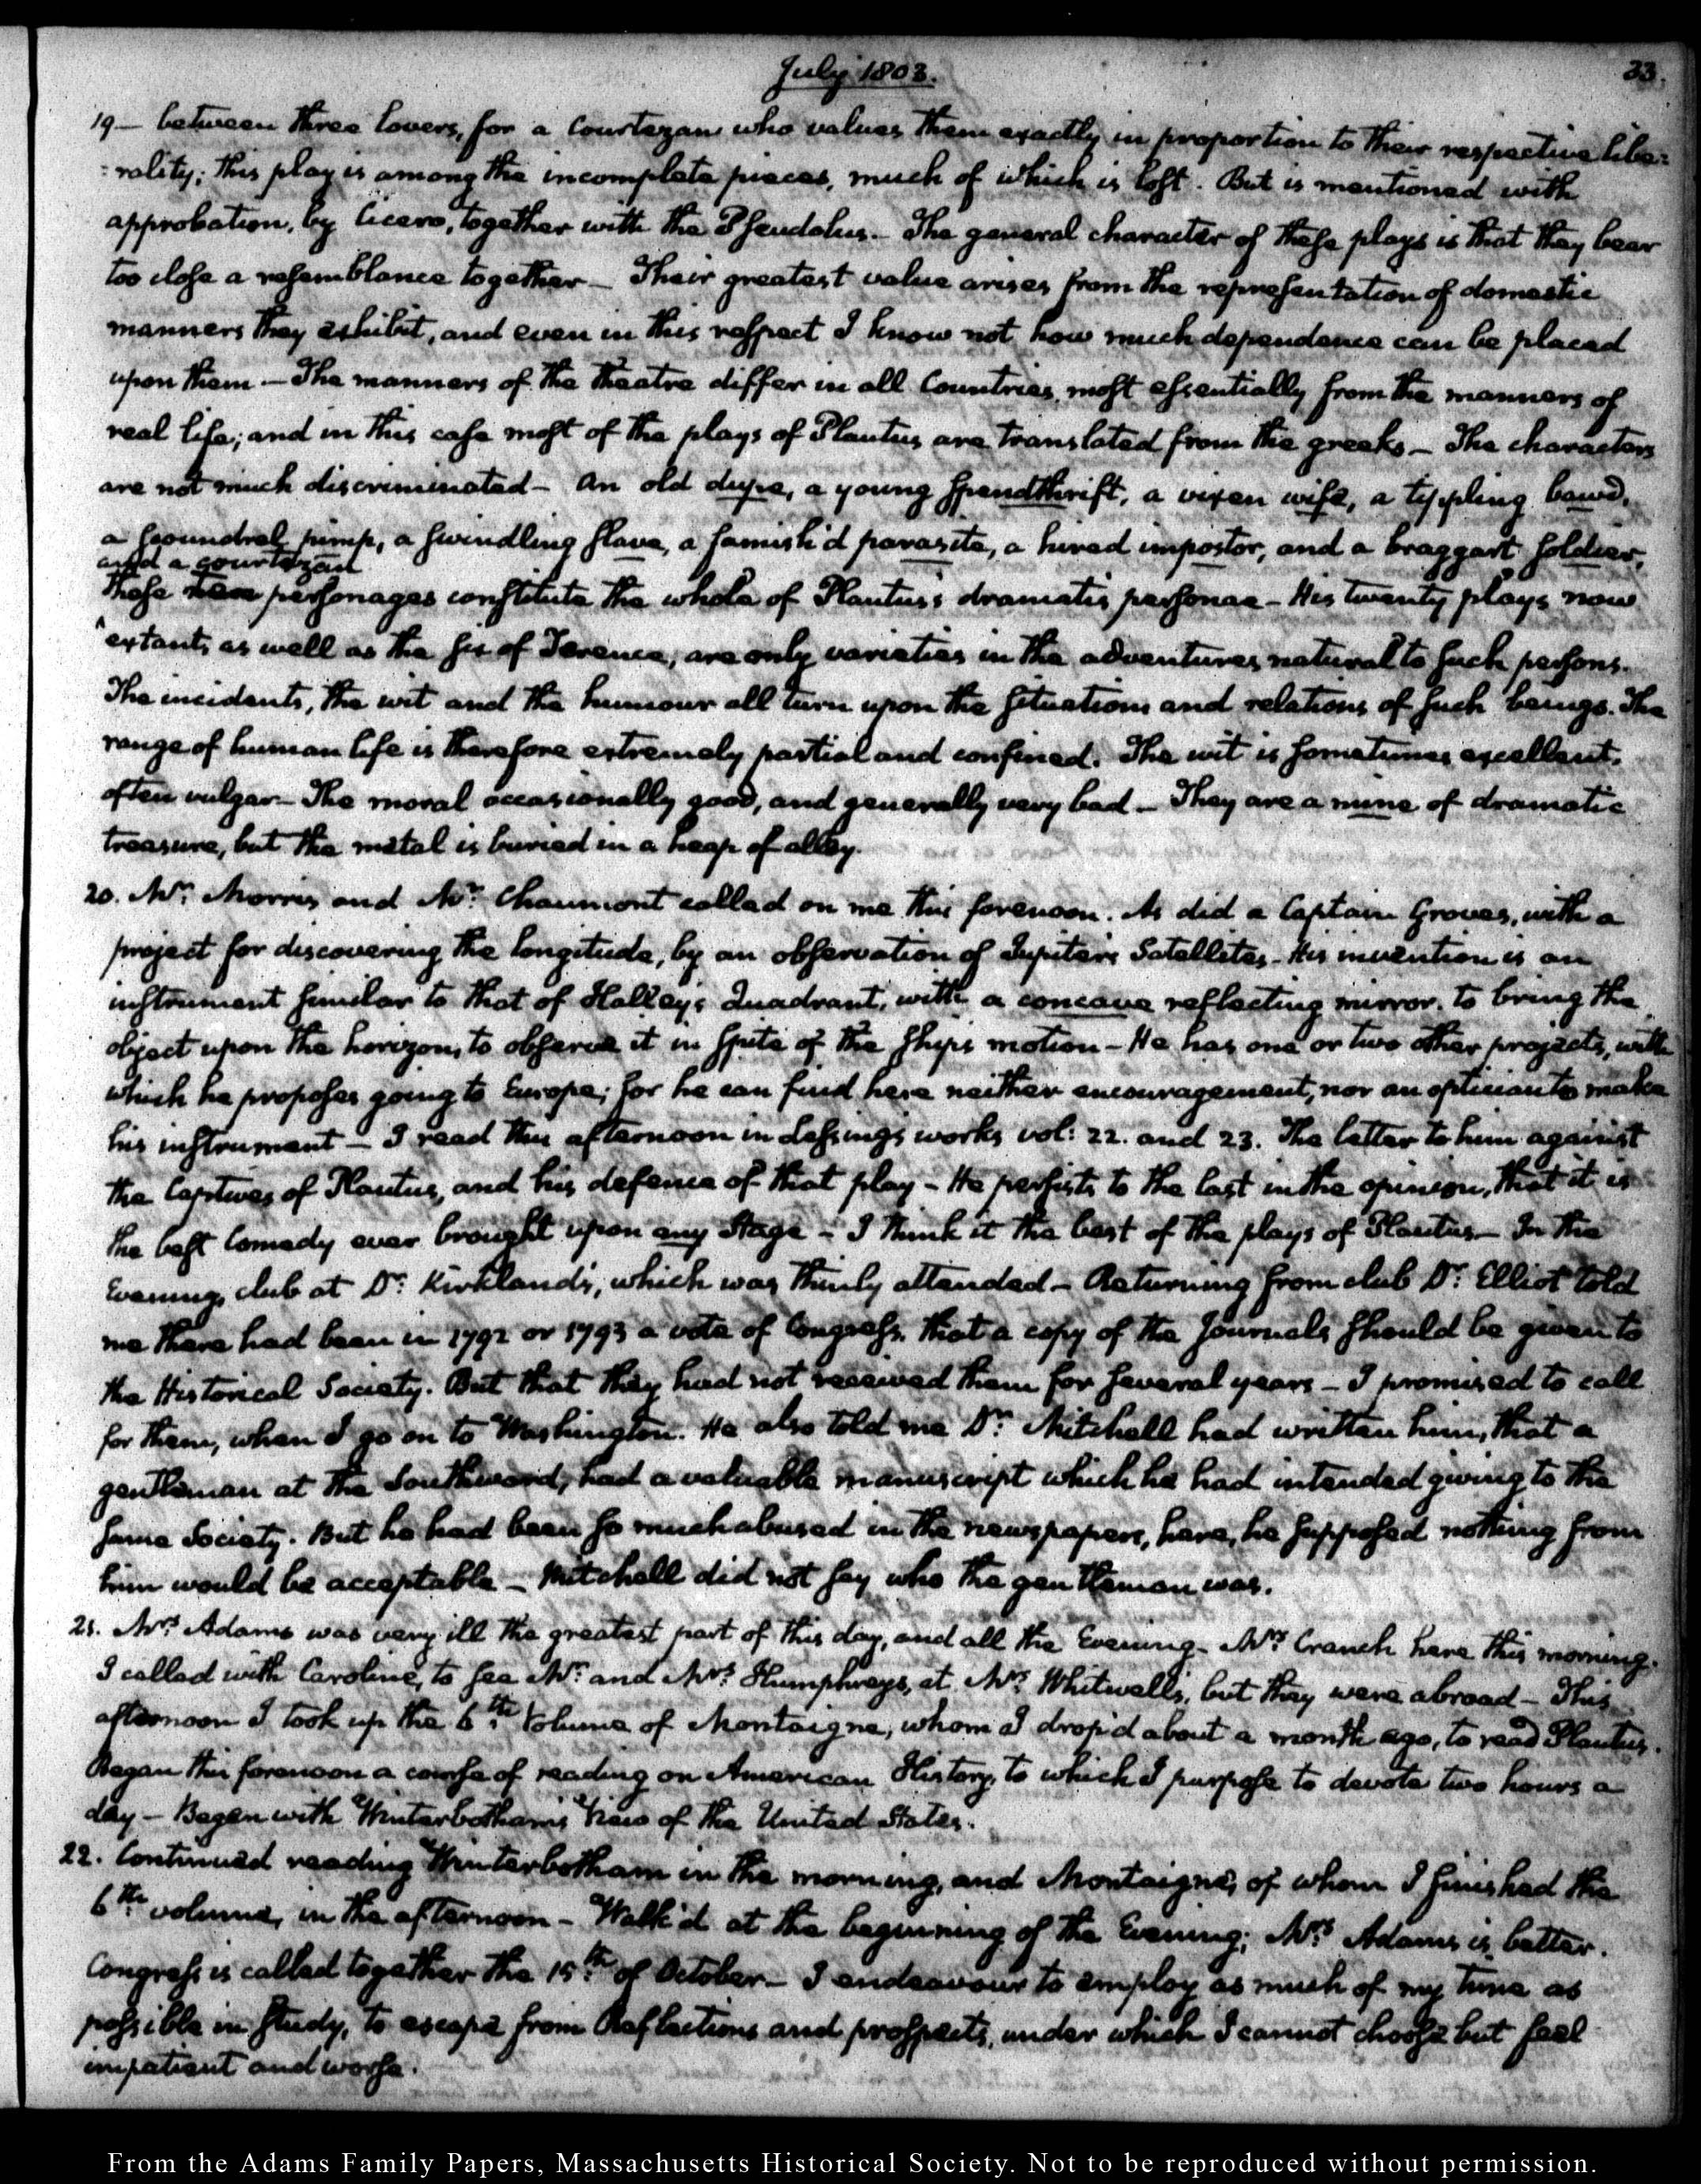 July 1803.
33.
19— between three lovers, for a Courtezan who values them exactly in proportion to their respective libe-
-rality; this play is among the incomplete pieces, much of which is lost. But is mentioned with
approbation, by Cicero, together with the Pseudolus.— The general character of these plays is that they bear
too close a resemblance together— Their greatest value arises from the representation of domestic
manners they exhibit, and even in this respect I know not how much dependence can be placed
upon them.— The manners of the theatre differ in all Countries, most essentially from the manners of
real life; and in this case most of the plays of Plautus are translated from the greeks— The characters
are not much discriminated— An old dupe, a young spendthrift, a vixen wife, a tippling bawd,
a scoundrel pimp, a swindling slave, a famish'd parasite, a hired impostor, and a braggart soldier,
and a courtezan
These personages constitute the whole of Plautus's dramatis personae— His twenty plays now
extant, as well as the six of Terence, are only varieties in the adventures natural to such persons.
The incidents, the wit and the humour all turn upon the situations and relations of such beings. The
range of human life is therefore extremely partial and confined. The wit is sometimes excellent,
often vulgar— The moral occasionally good, and generally very bad— They are a mine of dramatic
treasure, but the metal is buried in a heap of alloy.
20. Mr. Morris and Mr. Chaumont called on me this forenoon. As did a Captain Groves, with a
project for discovering the longitude, by an observation of Jupiter's Satellites— His invention is an
instrument similar to that of Halley's Quadrant, with a concave reflecting mirror, to bring the
object upon the horizon, to observe it in spite of the ship's motion— He has one or two other projects, with
which he proposes going to Europe; for he can find here neither encouragement, nor an optician to make
his instrument— I read this afternoon in Lessing's works vol: 22. and 23. The letter to him against
the Captives of Plautus, and his defence of that play— He persists to the last in the opinion, that it is
the best Comedy ever brought upon any Stage— I think it the best of the plays of Plautus— In the
Evening, club at Dr. Kirkland's, which was thinly attended— Returning from club Dr. Elliot told
me there had been in 1792 or 1793 a vote of Congress, that a copy of the Journals should be given to
the Historical Society. But that they had not received them for several years— I promised to call
for them, when I go on to Washington. He also told me Dr. Mitchell had written him, that a
gentleman at the Southward, had a valuable manuscript which he had intended giving to the
same Society. But he had been so much abused in the newspapers, here, he supposed nothing from
him would be acceptable— Mitchell did not say who the gentleman was.
21. Mrs. Adams was very ill the greatest part of this day, and all the Evening— Mrs. Cranch here this morning.
I called with Caroline, to see Mr. and Mrs. Humphreys, at Mrs. Whitwell's, but they were abroad— This
afternoon I took up the 6th. Volume of Montaigne, whom I drop'd about a month ago, to read Plautus.
Began this forenoon a course of reading on American History, to which I purpose to devote two hours a
day— Began with Winterbotham's View of the United States.
22. Continued reading Winterbotham in the morning, and Montaigne, of whom I finished the
6th. volume, in the afternoon— Walk'd at the beginning of the Evening; Mrs. Adams is better.
Congress is called together the 15th. of October— I endeavour to employ as much of my time as
possible in study, to escape from Reflections and prospects, under which I cannot choose but feel
impatient and worse.
From the Adams Family Papers, Massachusetts Historical Society. Not to be reproduced without permission.